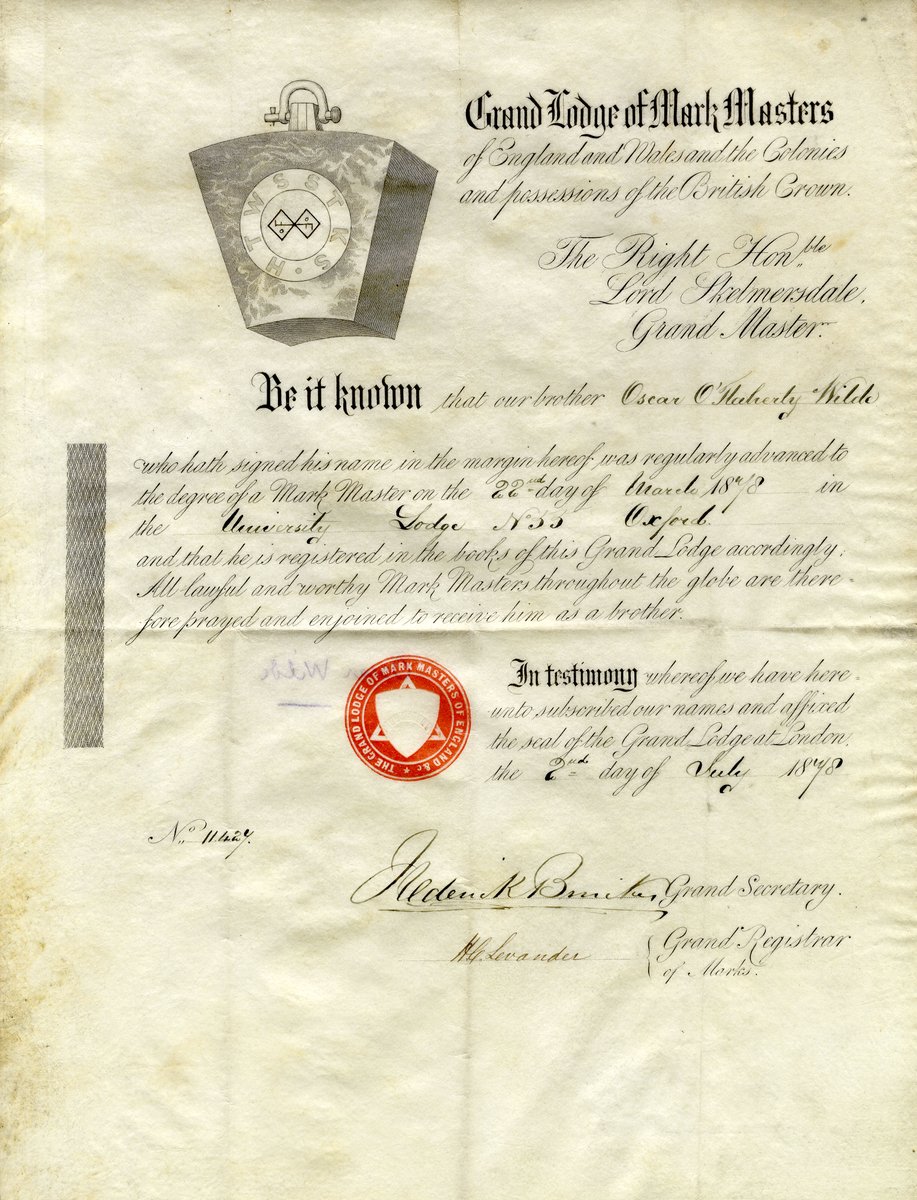 Grand Lodge of Mark Masters
of England and Wales and the Colonies
and possessions of the British Crown.
HTWSSTKS
The Right Hon,,ble
Lord Skelmersdale,
Grand Master.
Be it known that our brother Oscar O'Flaherty Wilde
who hath signed his name in the margin hereof was regularly advanced to
the degree of a Mark Master on the 22nd day of March 1878 in
the University Lodge N 55 Oxford.
and that he is registered in the books of this Grand Lodge accordingly:
All lawful and worthy Mark Masters throughout the globe are there-
fore prayed and enjoined to receive him as a brother.
THE GRAND LODGE OF MARK MASTERS OF ENGLAND &c
In testimony whereof we have here-
unto subscribed our names and affixed
the seal of the Grand Lodge at London,
the 2nd day of July 1878
No 11427.
Frederick Grand Secretary.
H.C. Levander Grand Registrar
of Marks.